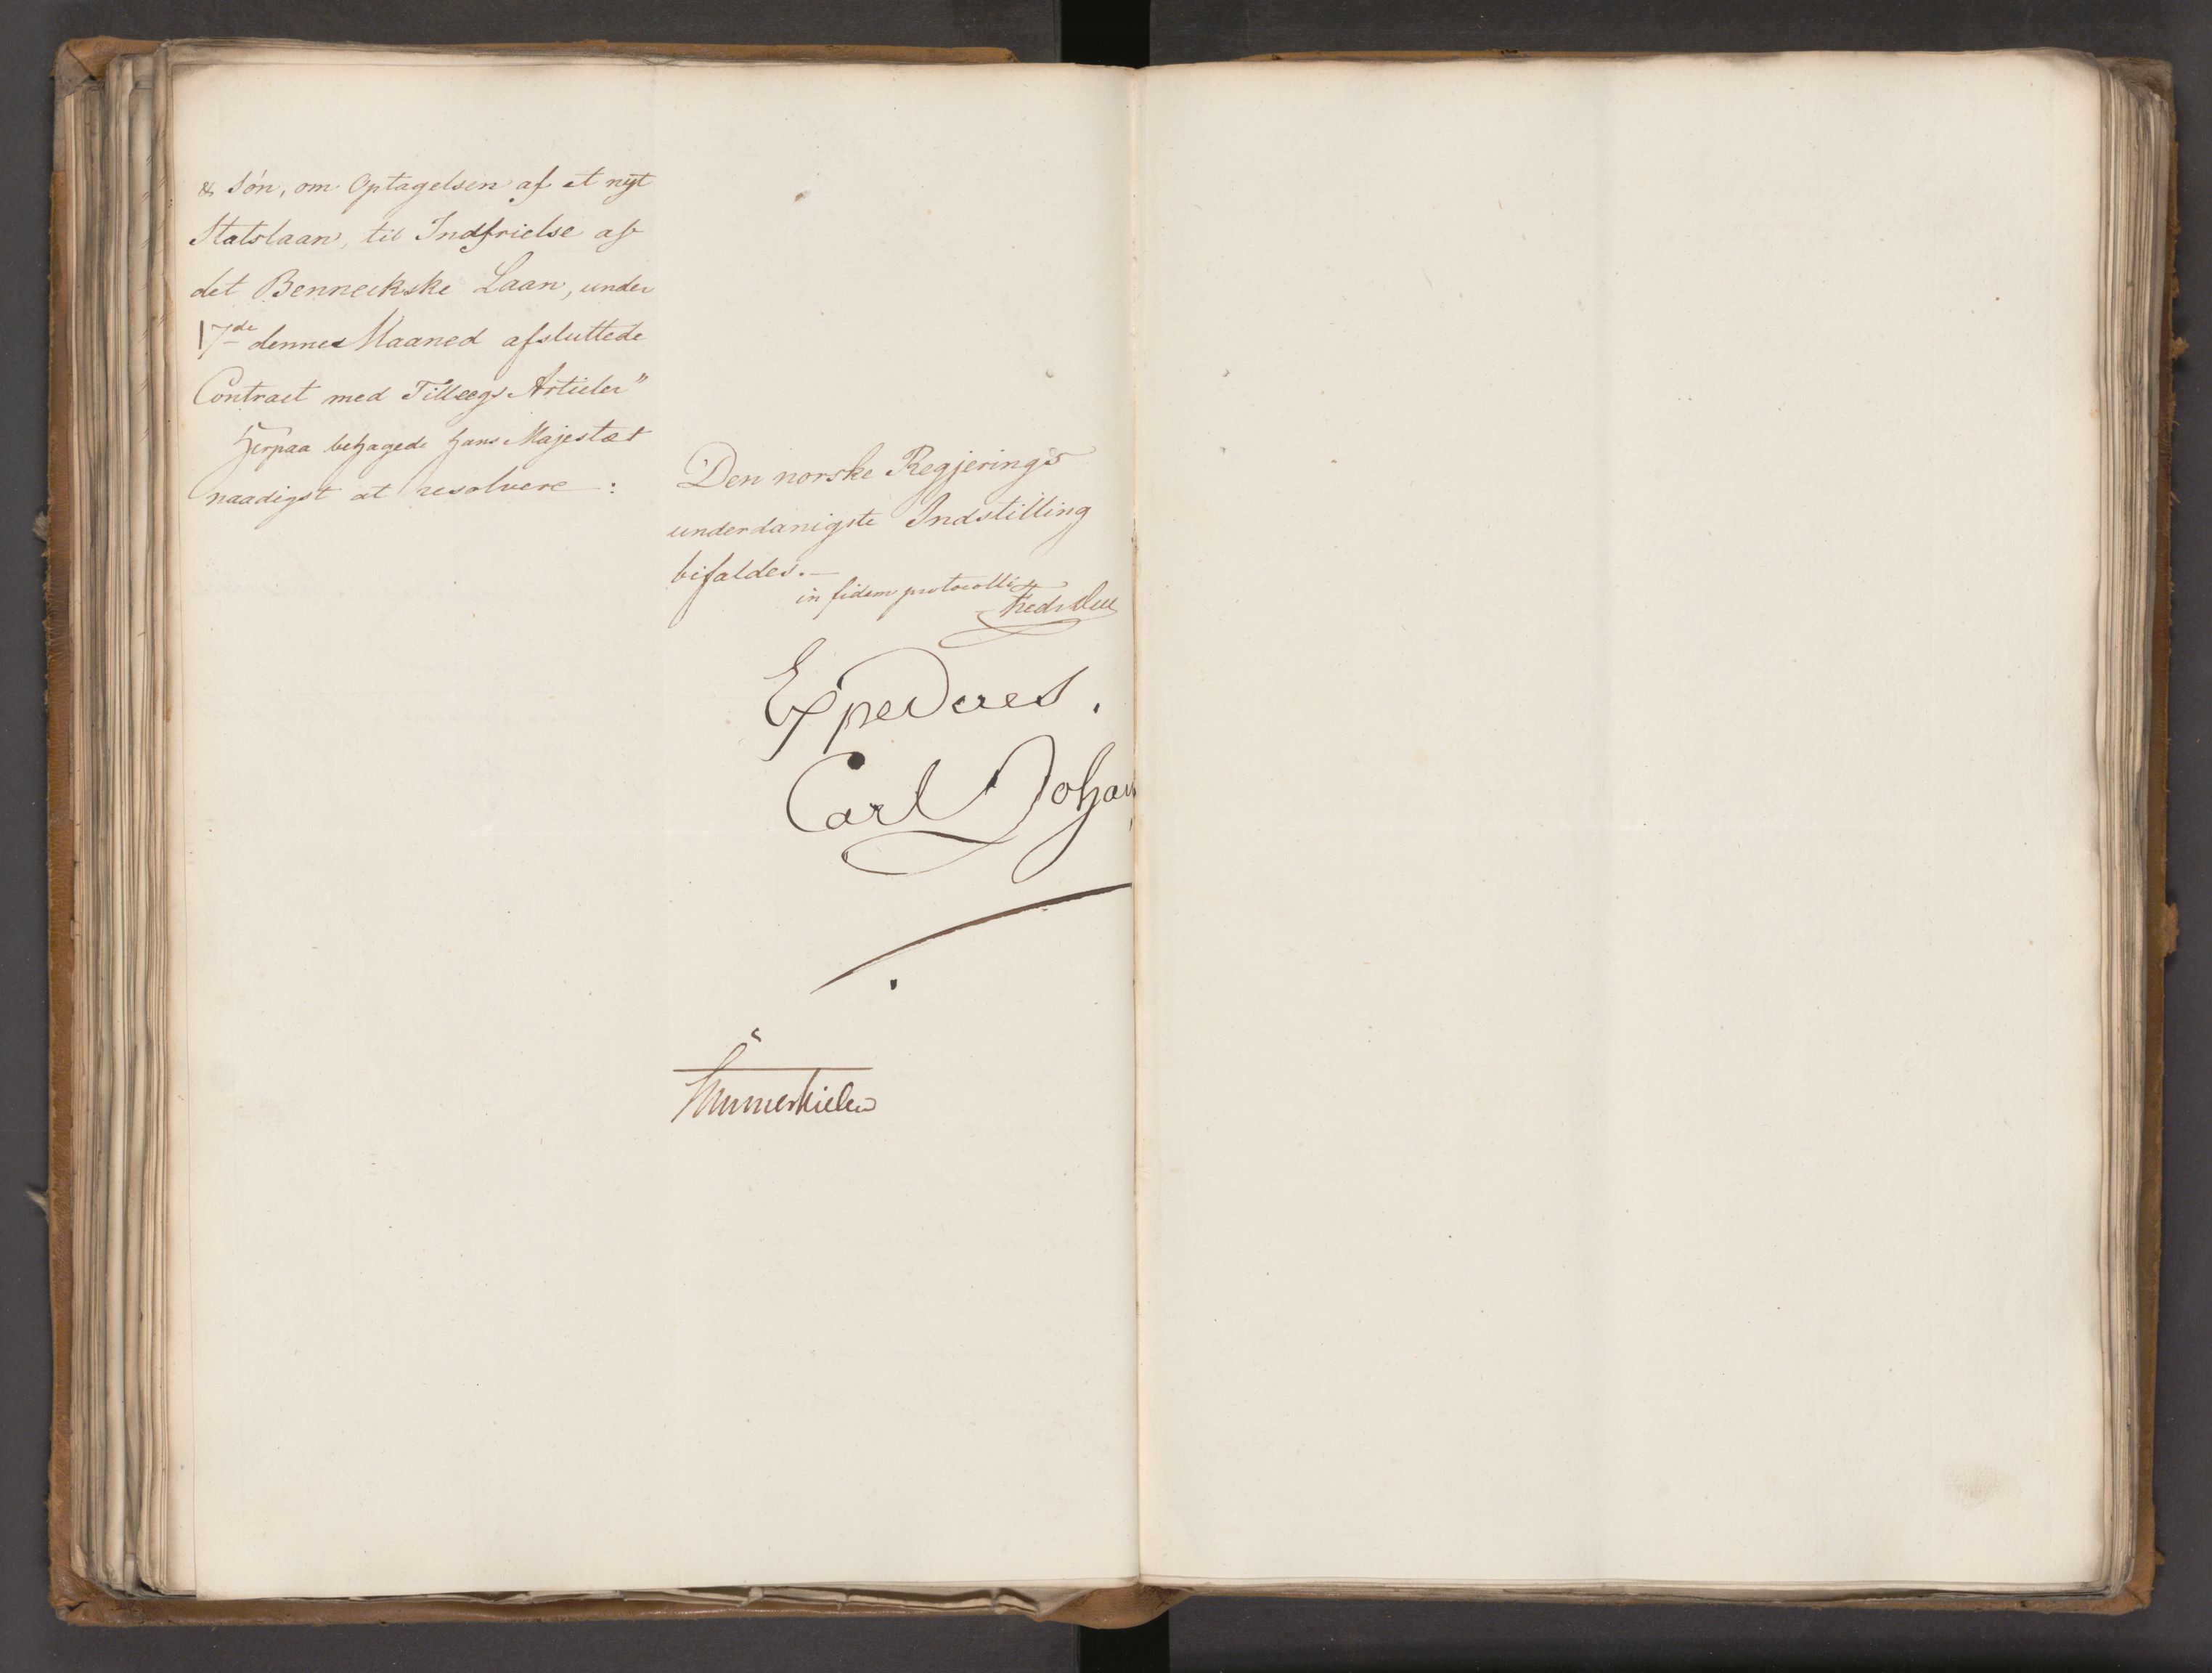 & Søn, om Optagelsen af et nyt
Statslaan, til Indfrielse af
det Benneckske Laan, under
17de dennes Maaned afsluttede
Contract med Tillægs Artikler"
Herpaa behagede Hans Majestæt
naadigst at resolvere :
Den norske Regjerings
underdanigste Indstilling
bifaldes. —
in fidem protocolli
Fredr Due
Expederes.
Carl Johan